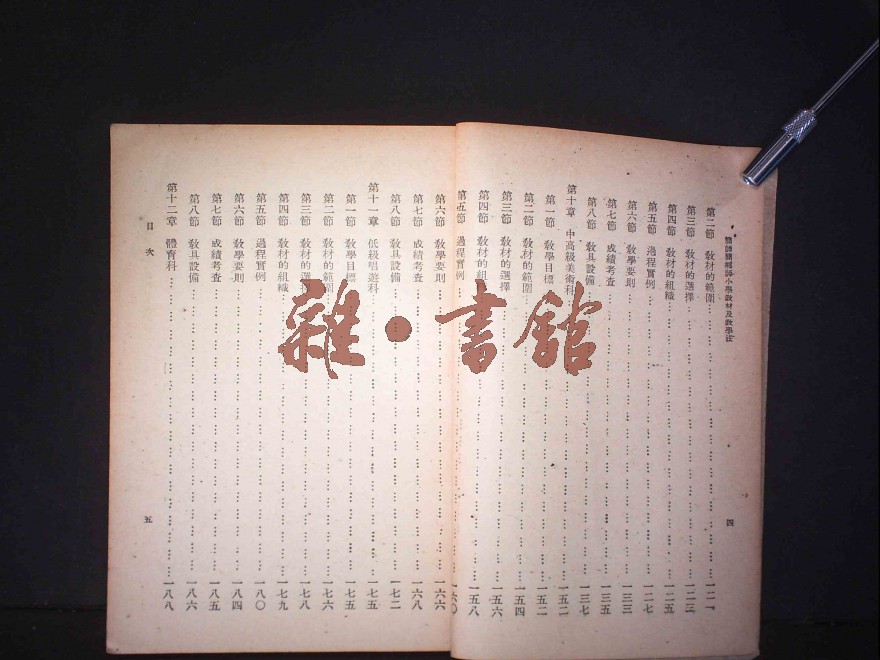 簡師簡鄉師小學教材及教學法
第二節 教材的範圍 一二一
第三節 教材的選擇 一二三
第四節 教材的組織 一二五
第五節 過程實例 一二七
第六節 教學要則 一三三
第七節 成績考查 一三五
第八節 教具設備 一三七
第十章 中高級美術科 一五二
第一節 教學目標 一五二
第二節 教材的範圍 一五四
第三節 教材的選擇
第四節 教材的組織
第五節 過程實例 一六〇
四
第六節 教學要則 一六六
第七節 成績考查 一六八
第八節 教具設備 一七二
第十一章 低級唱遊科 一七五
第一節 教學目標 一七五
第二節 教材的範圍 一七六
第三節 教材的選擇 一七八
第四節 教材的組織 一七九
第五節 過程實例 一八〇
第六節 教學要則 一八四
第七節 成績考查 一八五
第八節 教具設備 一八六
第十二章 體育科 一八八
目次
五
雜·書館